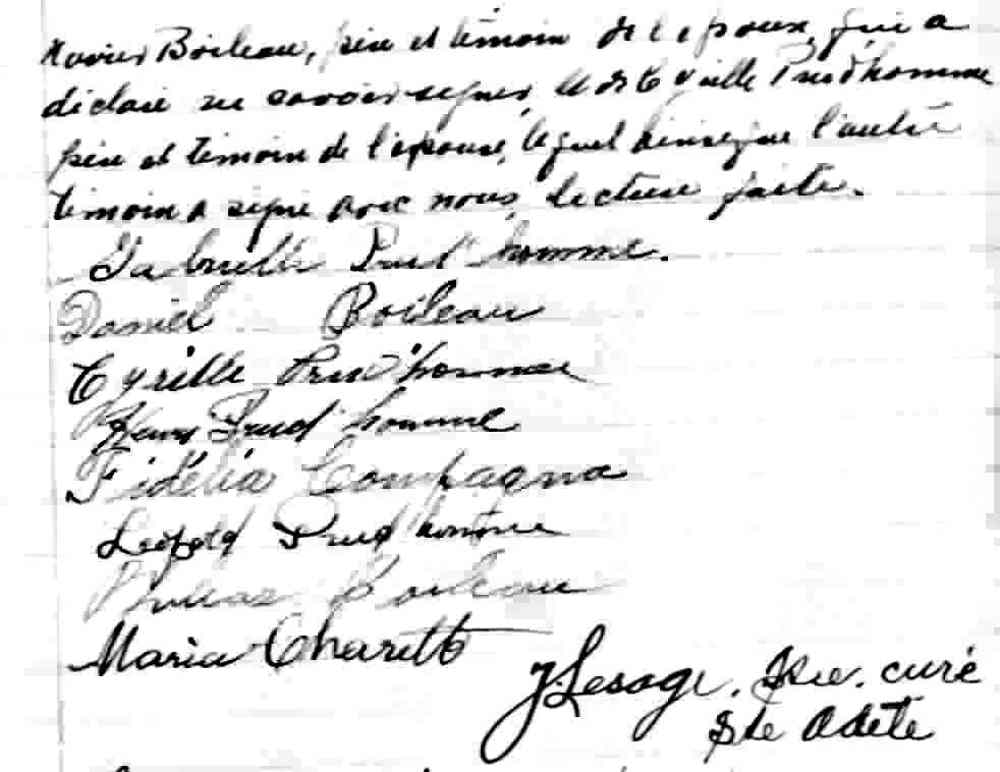 Xavier Boileau, père et témoin de l'époux, qui a
déclaré ne savoir signer, et de Cyrille Prud'homme
père et témoin de l'épouse, lequel ainsi que l'autre
témoin a signé avec nous, lecture faite.
Gabrielle Prud'homme.
Daniel Boileau
Cyrille Prud'homme
Henri Prud'homme
Fidélia Compagna
Léopold Prud'homme
Boileau
Maria Charette
J. Lesage, Ptre. curé
Ste Adèle